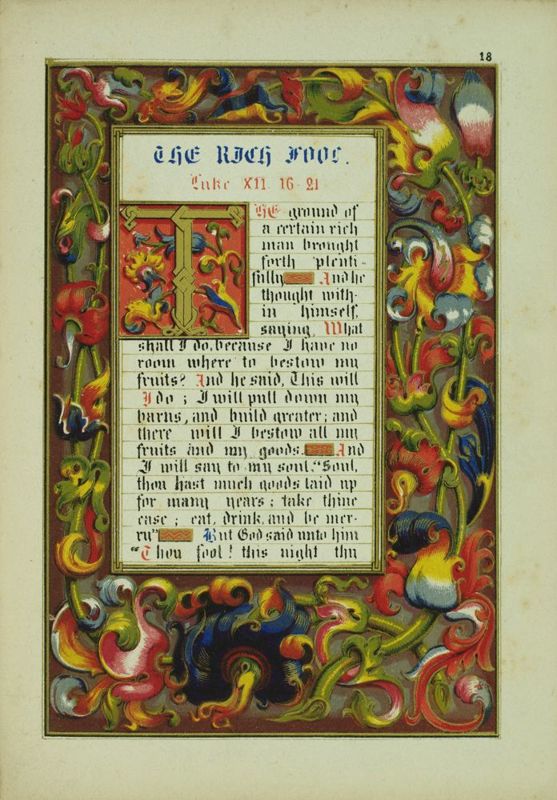 18
THE RICH FOOL.
Luke XII. 16-21
THE ground of
a certain rich
man brought
forth plenti-
fully And he
thought with-
in himself,
saying, What
shall I do, because I have no
room where to bestow my
fruits? And he said, This will
I do; I will pull down my
barns, and build greater; and
there will I bestow all my
fruits and my goods. And
I will say to my soul, "Soul,
thou hast much goods laid up
for many years; take thine
ease; eat, drink, and be mer-
ry" But God said unto him
"Thou fool! this night thy